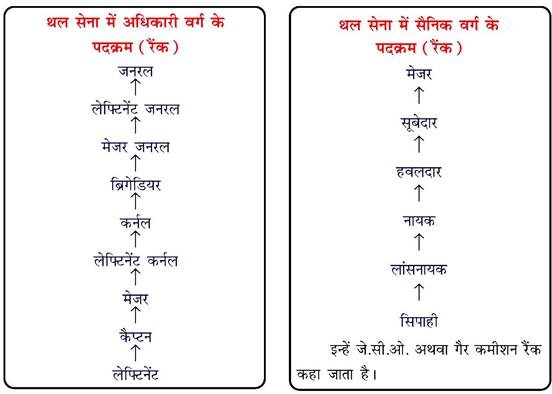 थल सेना में अधिकारी वर्ग के
पदक्रम (रैंक)
जनरल
लेफ्टिनेंट जनरल
मेजर जनरल
ब्रिगेडियर
कर्नल
लेफ्टिनेंट कर्नल
मेजर
कैप्टन
लेफ्टिनेंट
थल सेना में सैनिक वर्ग के
पदक्रम (रैंक)
मेजर
सूबेदार
हवलदार
नायक
लांसनायक
सिपाही
इन्हें जे.सी.ओ. अथवा गैर कमीशन रैंक
कहा जाता है।